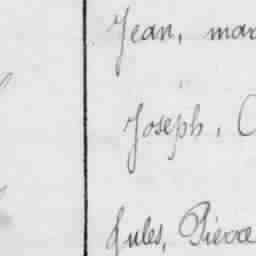 Jean, mar
Joseph, C
Jules, Pierre